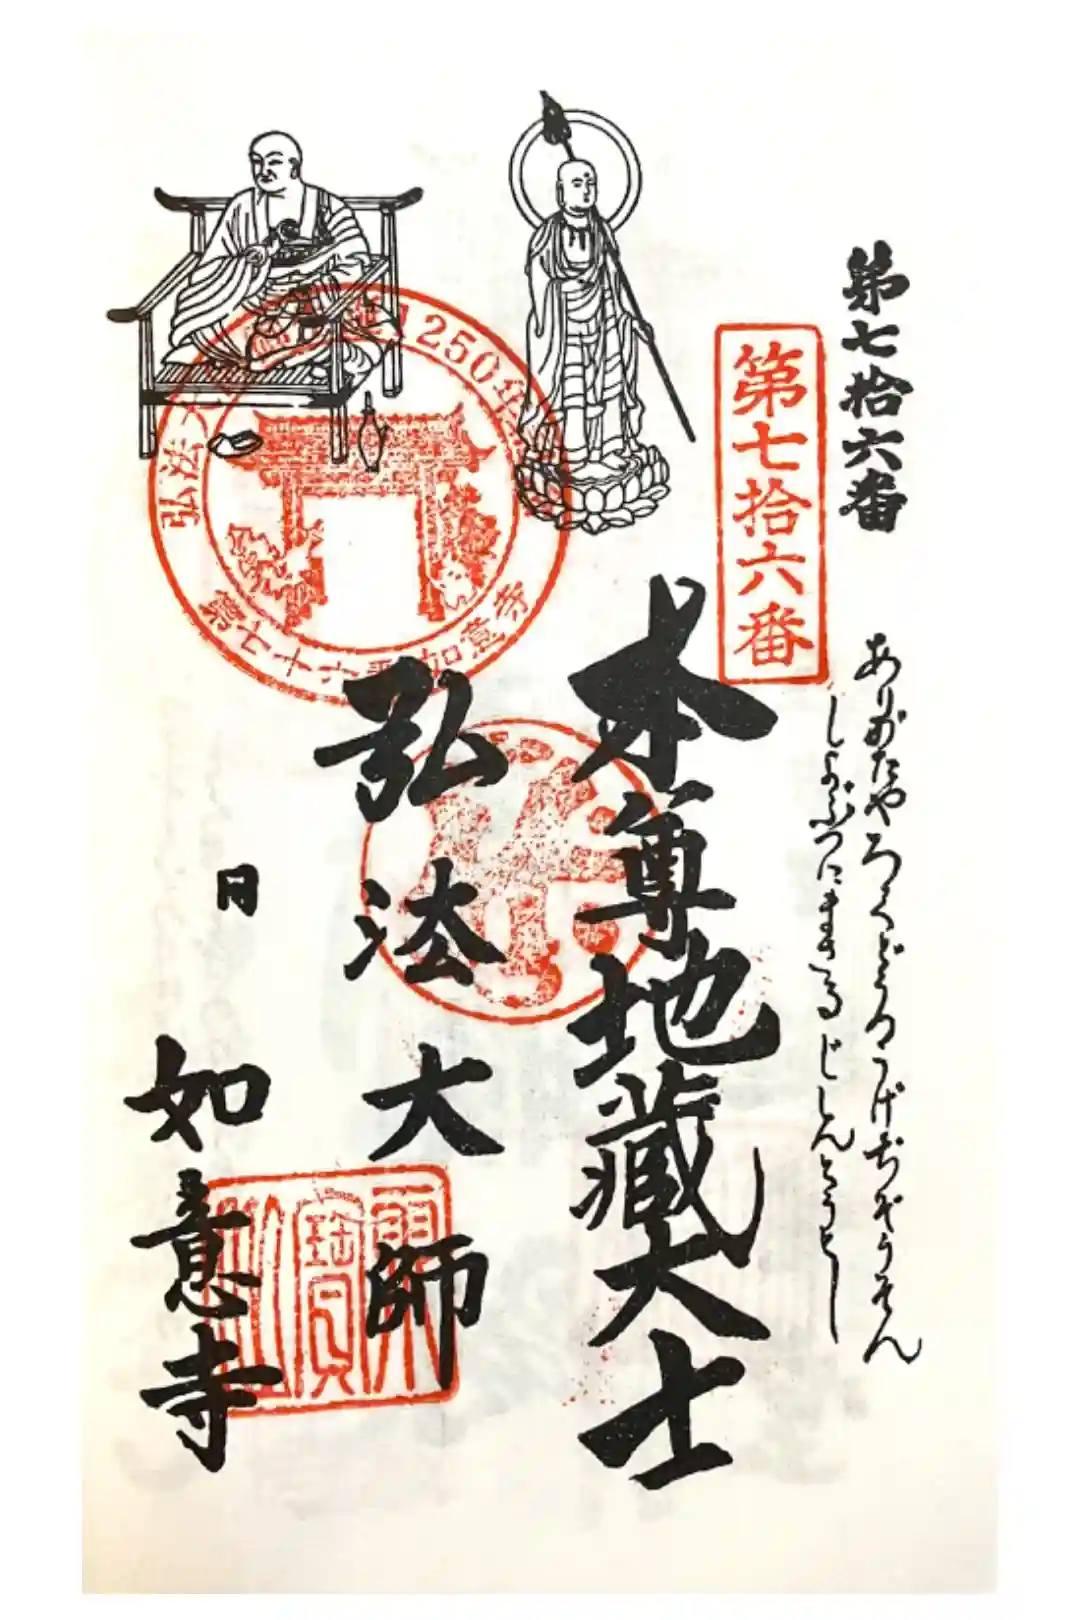 第七拾六番
第七拾六番
ありがたやろくどうのうげぢぞうそん
しょぶつにまさるじしんとうとし
本尊地藏大士
弘法大師
弘法大 誕生1250年
第七十六番 如意寺
日
如意寺